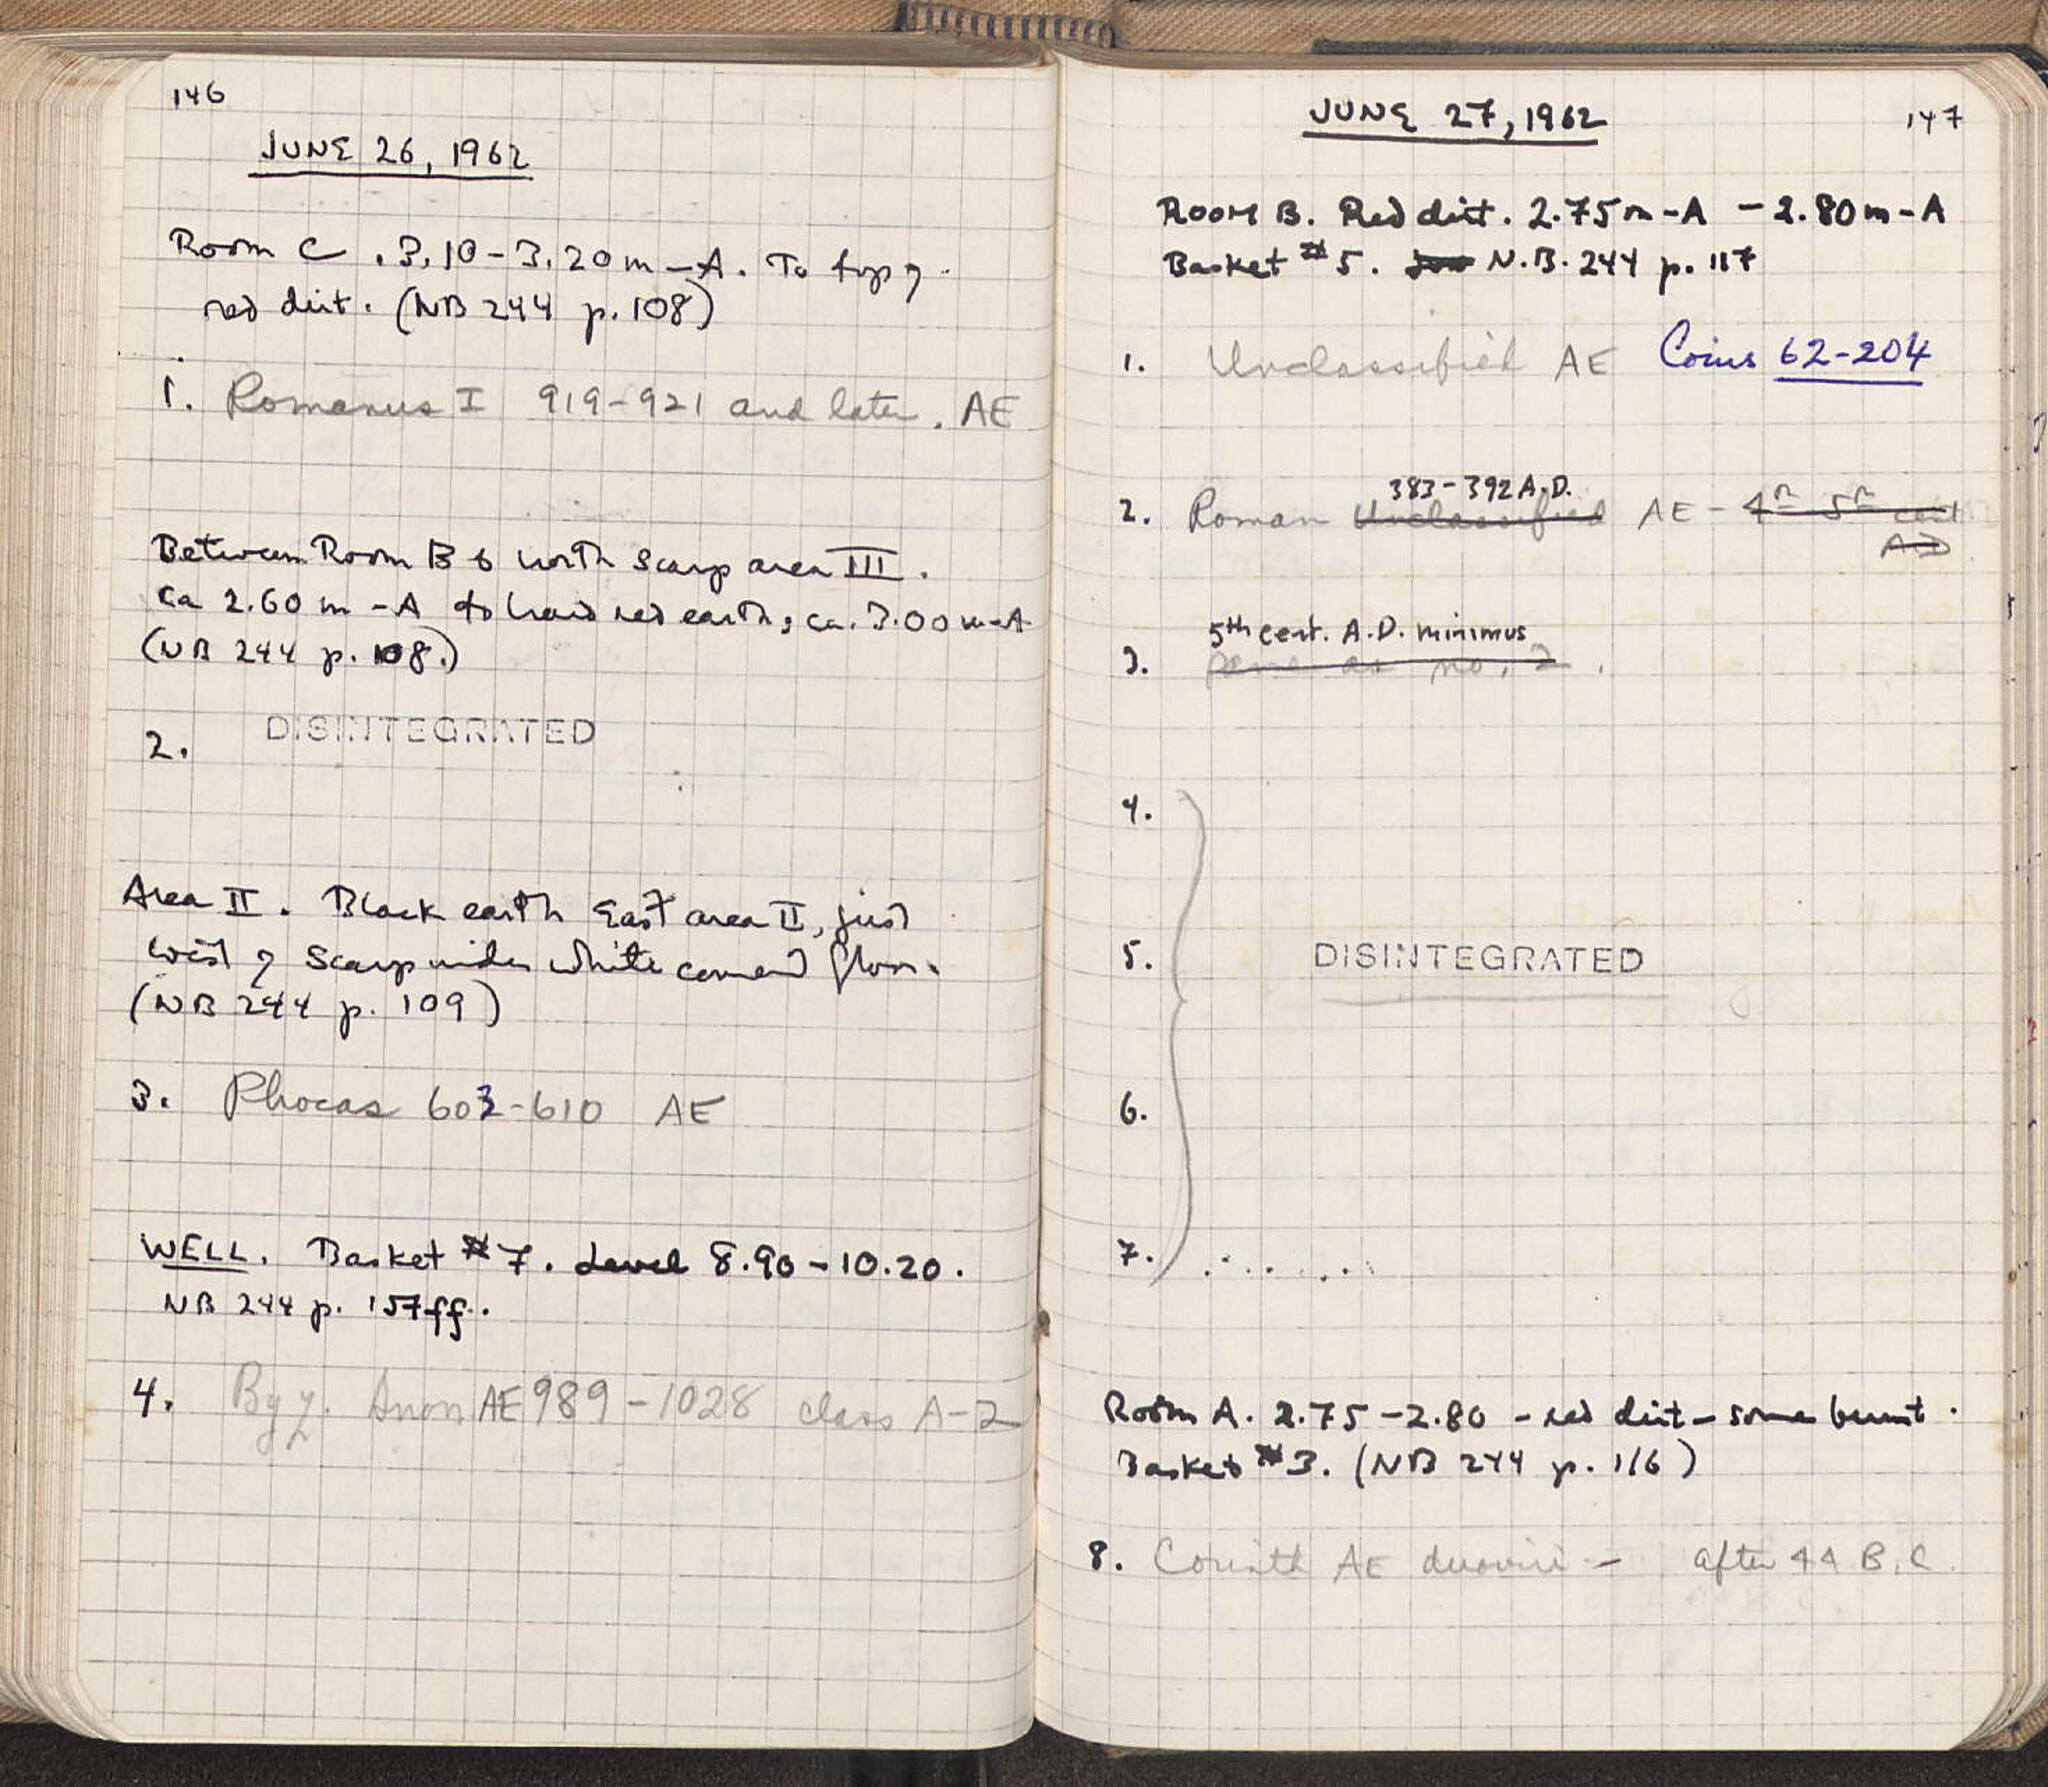 146
JUNE 26, 1962
Room C . 3.10 - 3.20 m - A. To top of
red dirt. (NB 244 p. 108)
1. Romanus I 919-921 and later. AE
Between Room B & north scarp area III.
Ca 2.60 m - A to hard red earth, ca. 3.00 m - A
(NB 244 p. 108.)
2. DISINTEGRATED
Area II. Black earth East area II, just
west of scarp under white cement floor.
(NB 244 p. 109)
3. Phocas 603-610 AE
WELL. Basket #7. Level 8.90 - 10.20.
NB 244 p. 157ff.
4. Byz. Anon AE 989-1028 class A-2
JUNE 27, 1962
147
ROOM B. Red dirt. 2.75 m - A - 2.80 m - A
Basket #5. N.B. 244 p. 117
1. Unclassified AE Coins 62-204
383-392 A.D.
2. Roman Unclassified AE - 4th 5th cent
AD
5th cent. A.D. minimus
3. Same as no. 2.
4.
5. DISINTEGRATED
6.
7.
Room A. 2.75 - 2.80 - red dirt - some burnt.
Basket #3. (NB 244 p. 116)
8. Corinth AE duoviri - after 44 B.C.